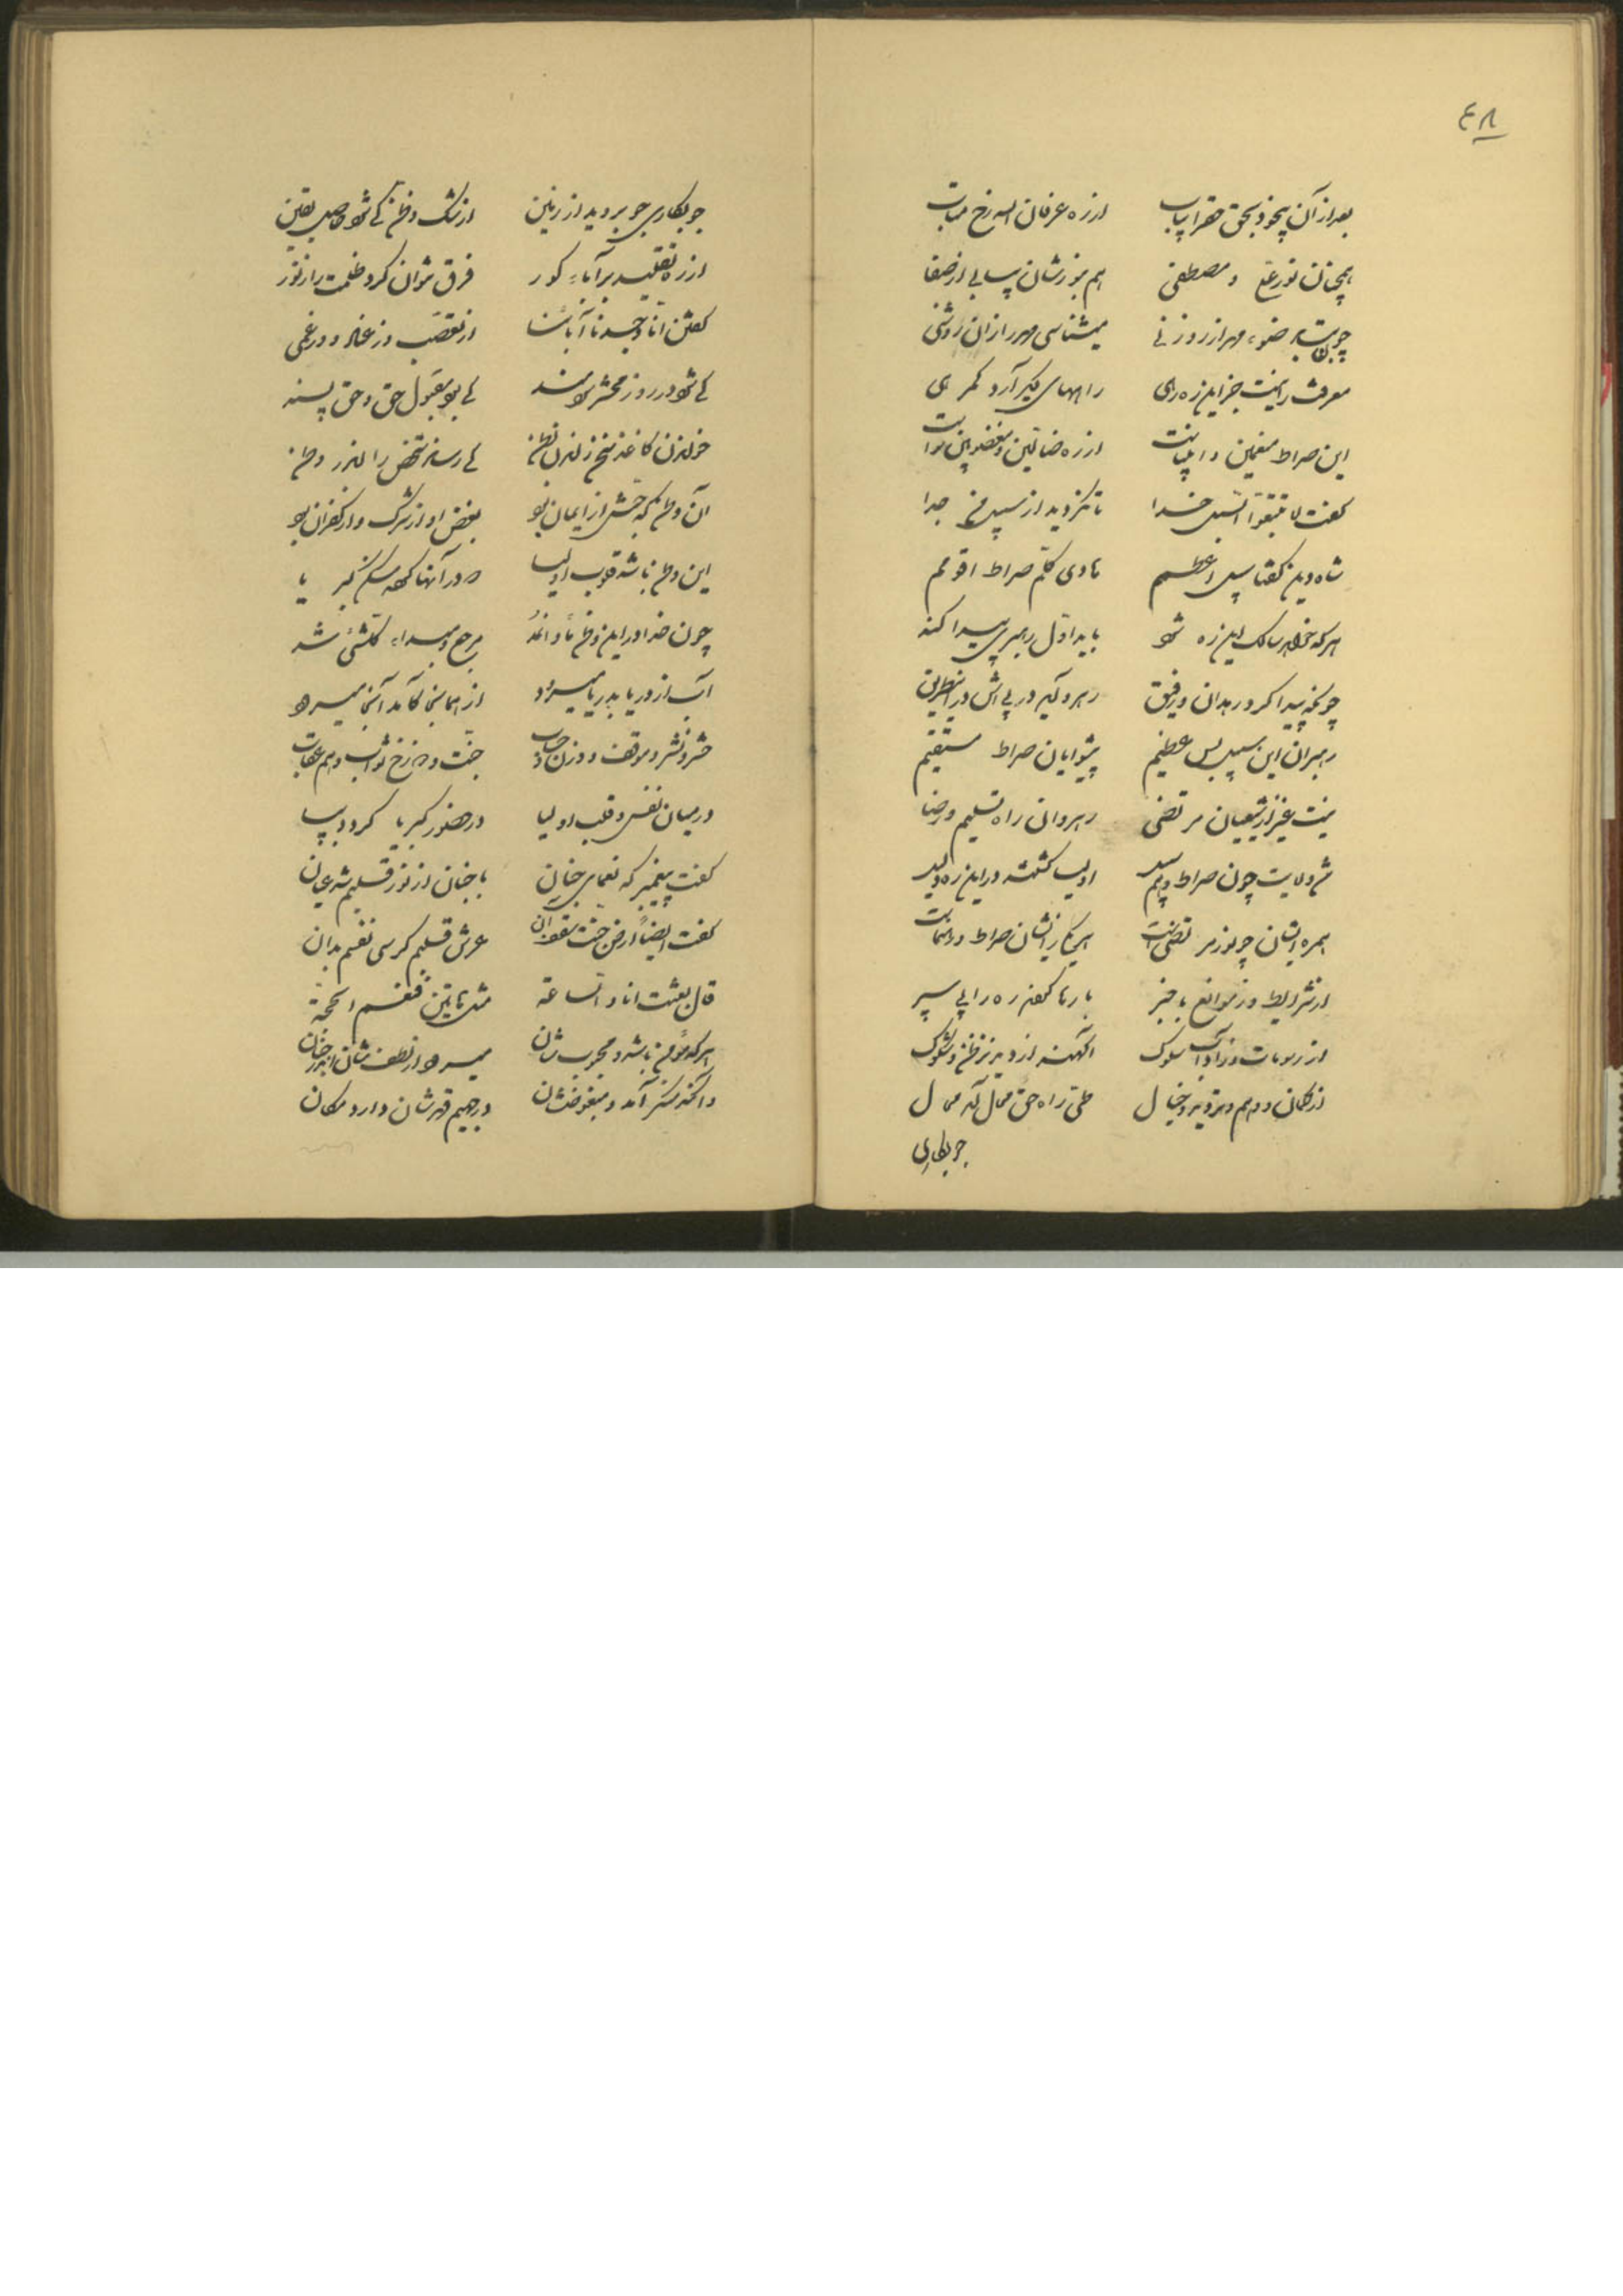 ٤٨
بعد از آن بیخود بحق حق را بیاب از ره عرفان الله رخ متاب
همچنان نور علی و مصطفی هم بنورشان بیابی از صفا
چون بتابد ضوء مهر از روزنی میشناسی مهر را زان روشنی
معرفت را نیست جز این ره رهی راههای دیگر آرد گمرهی
این صراط منعمین و اولیاست از ره ضالین و مغضوبین سواست
گفت لا تتبعوا السبل خدا تا نگردید از سبیل من جدا
شاه دین گفتا سبیل اعظمم هادی کلم صراط اقومم
هر که خواهد سالک این ره شود باید اول رهبری پیدا کند
چونکه پیدا کرد رهدان و رفیق رهرو گیر در پی‌اش در این طریق
رهبران این سبیل بس عظیم پیشوایان صراط مستقیم
نیست غیر از شیعیان مرتضی رهروان راه تسلیم و رضا
شد ولایت چون صراط و هم سبیل اولیا گشتند در این ره دلیل
همره ایشان چو نور مرتضی است هر یک ز ایشان صراط و رهنماست
از شرایط وز موانع باخبر بارها کرده ره را پی سپر
از رسومات وز آداب سلوک آگهند از دید نز ظن و شکوک
از گمان و وهم و تزویر و خیال طی راه حق محال آمد محال
جو بکاری
جو بکاری جو بروید از زمین از شک و ظن کی شود حاصل یقین
از ره تقلید بر آباء کور فرق نتوان کرد ظلمت را ز نور
گفتن انا وجدنا آبائنا از تعصب وز عناد و در عمی
کی شود در روز محشر سودمند کی بود مقبول حق و حق پسند
خواندن کاغذ نسخ ز لندن وطن کی رساند شخص را اندر وطن
آن وطن که حبش از ایمان بود بغض او از شرک و از کفران بود
این وطن باشد قلوب اولیا که در آنها کرده مسکن کبریا
چون خدا در این وطن مأوا نمود مرجع و مبداء کلشئ شد
آب از دریا بدریا میرود از همانجا کآمد آنجا میرود
حشر و نشر و موقف و وزن حساب جنت و دوزخ ثواب و هم عقاب
در میان نفس و قلب اولیا در حضور کبریا گردد بپا
گفت پیغمبر که نعمای جنان با جنان از نور قلبم شد عیان
گفت ایضا ارض جنت سقف آن عرش قلبم کرسی نفسم بدان
قال بعثت انا و الساعة مثل هاتین فنعم الحجة
هر که مؤمن باشد و محبوبشان میرود از لطفشان اندر جنان
وانکه منکر آمد و مبغوضشان در جحیم قهرشان دارد مکان